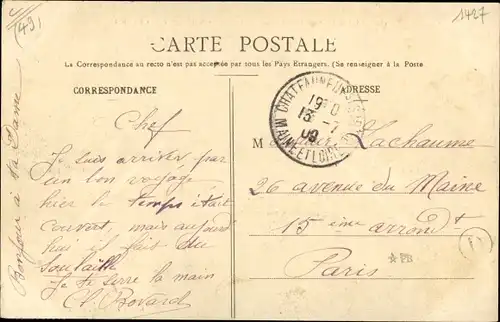 (49)
1427
CARTE POSTALE
La Correspondance au recto n'est pas acceptée par tous les Pays Etrangers. (Se renseigner à la Poste
CORRESPONDANCE
ADRESSE
CHATEAUNEUF
MAINE-ET-LOIRE
19
13 - 7
09
Chef
Je suis arriver par
un bon voyage
hier le temps était
couvert, mais aujourd
hui il fait du
soulaille
Je te serre la main
C. Rovard
Bonjour à ta Dame
M Lachaume
26 avenue du Maine
15 ième arrondt
Paris